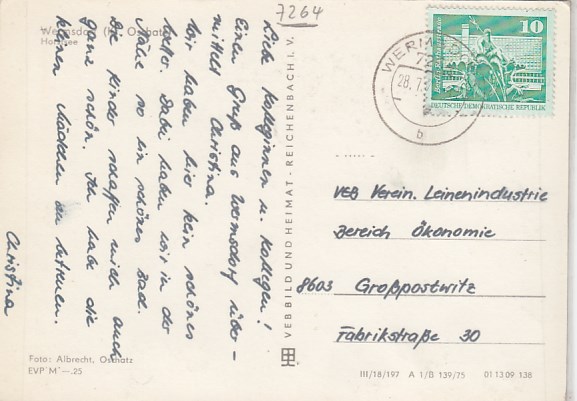 7264
Wermsdorf (Kr. Oschatz)
Horstsee
Liebe Kolleginnen u. Kollegen!
Einen Gruß aus Wermsdorf über-
mittelt Christina.
Wir haben hier kein schönes
Wetter. Dabei haben wir in der
Nähe so ein schönes Bad.
Die Kinder schaffen mich auch
ganz schön. Ich habe die
kleinen Mädchen zu betreuen.
Christina
Foto: Albrecht, Oschatz
EVP M —.25
VEB BILD UND HEIMAT - REICHENBACH I. V.
10
Berlin Rathausstrasse
DEUTSCHE DEMOKRATISCHE REPUBLIK
28.7.
b
VEB Verein. Leinenindustrie
Bereich Ökonomie
8603 Großpostwitz
Fabrikstraße 30
III/18/197 A 1/B 139/75 01 13 09 138